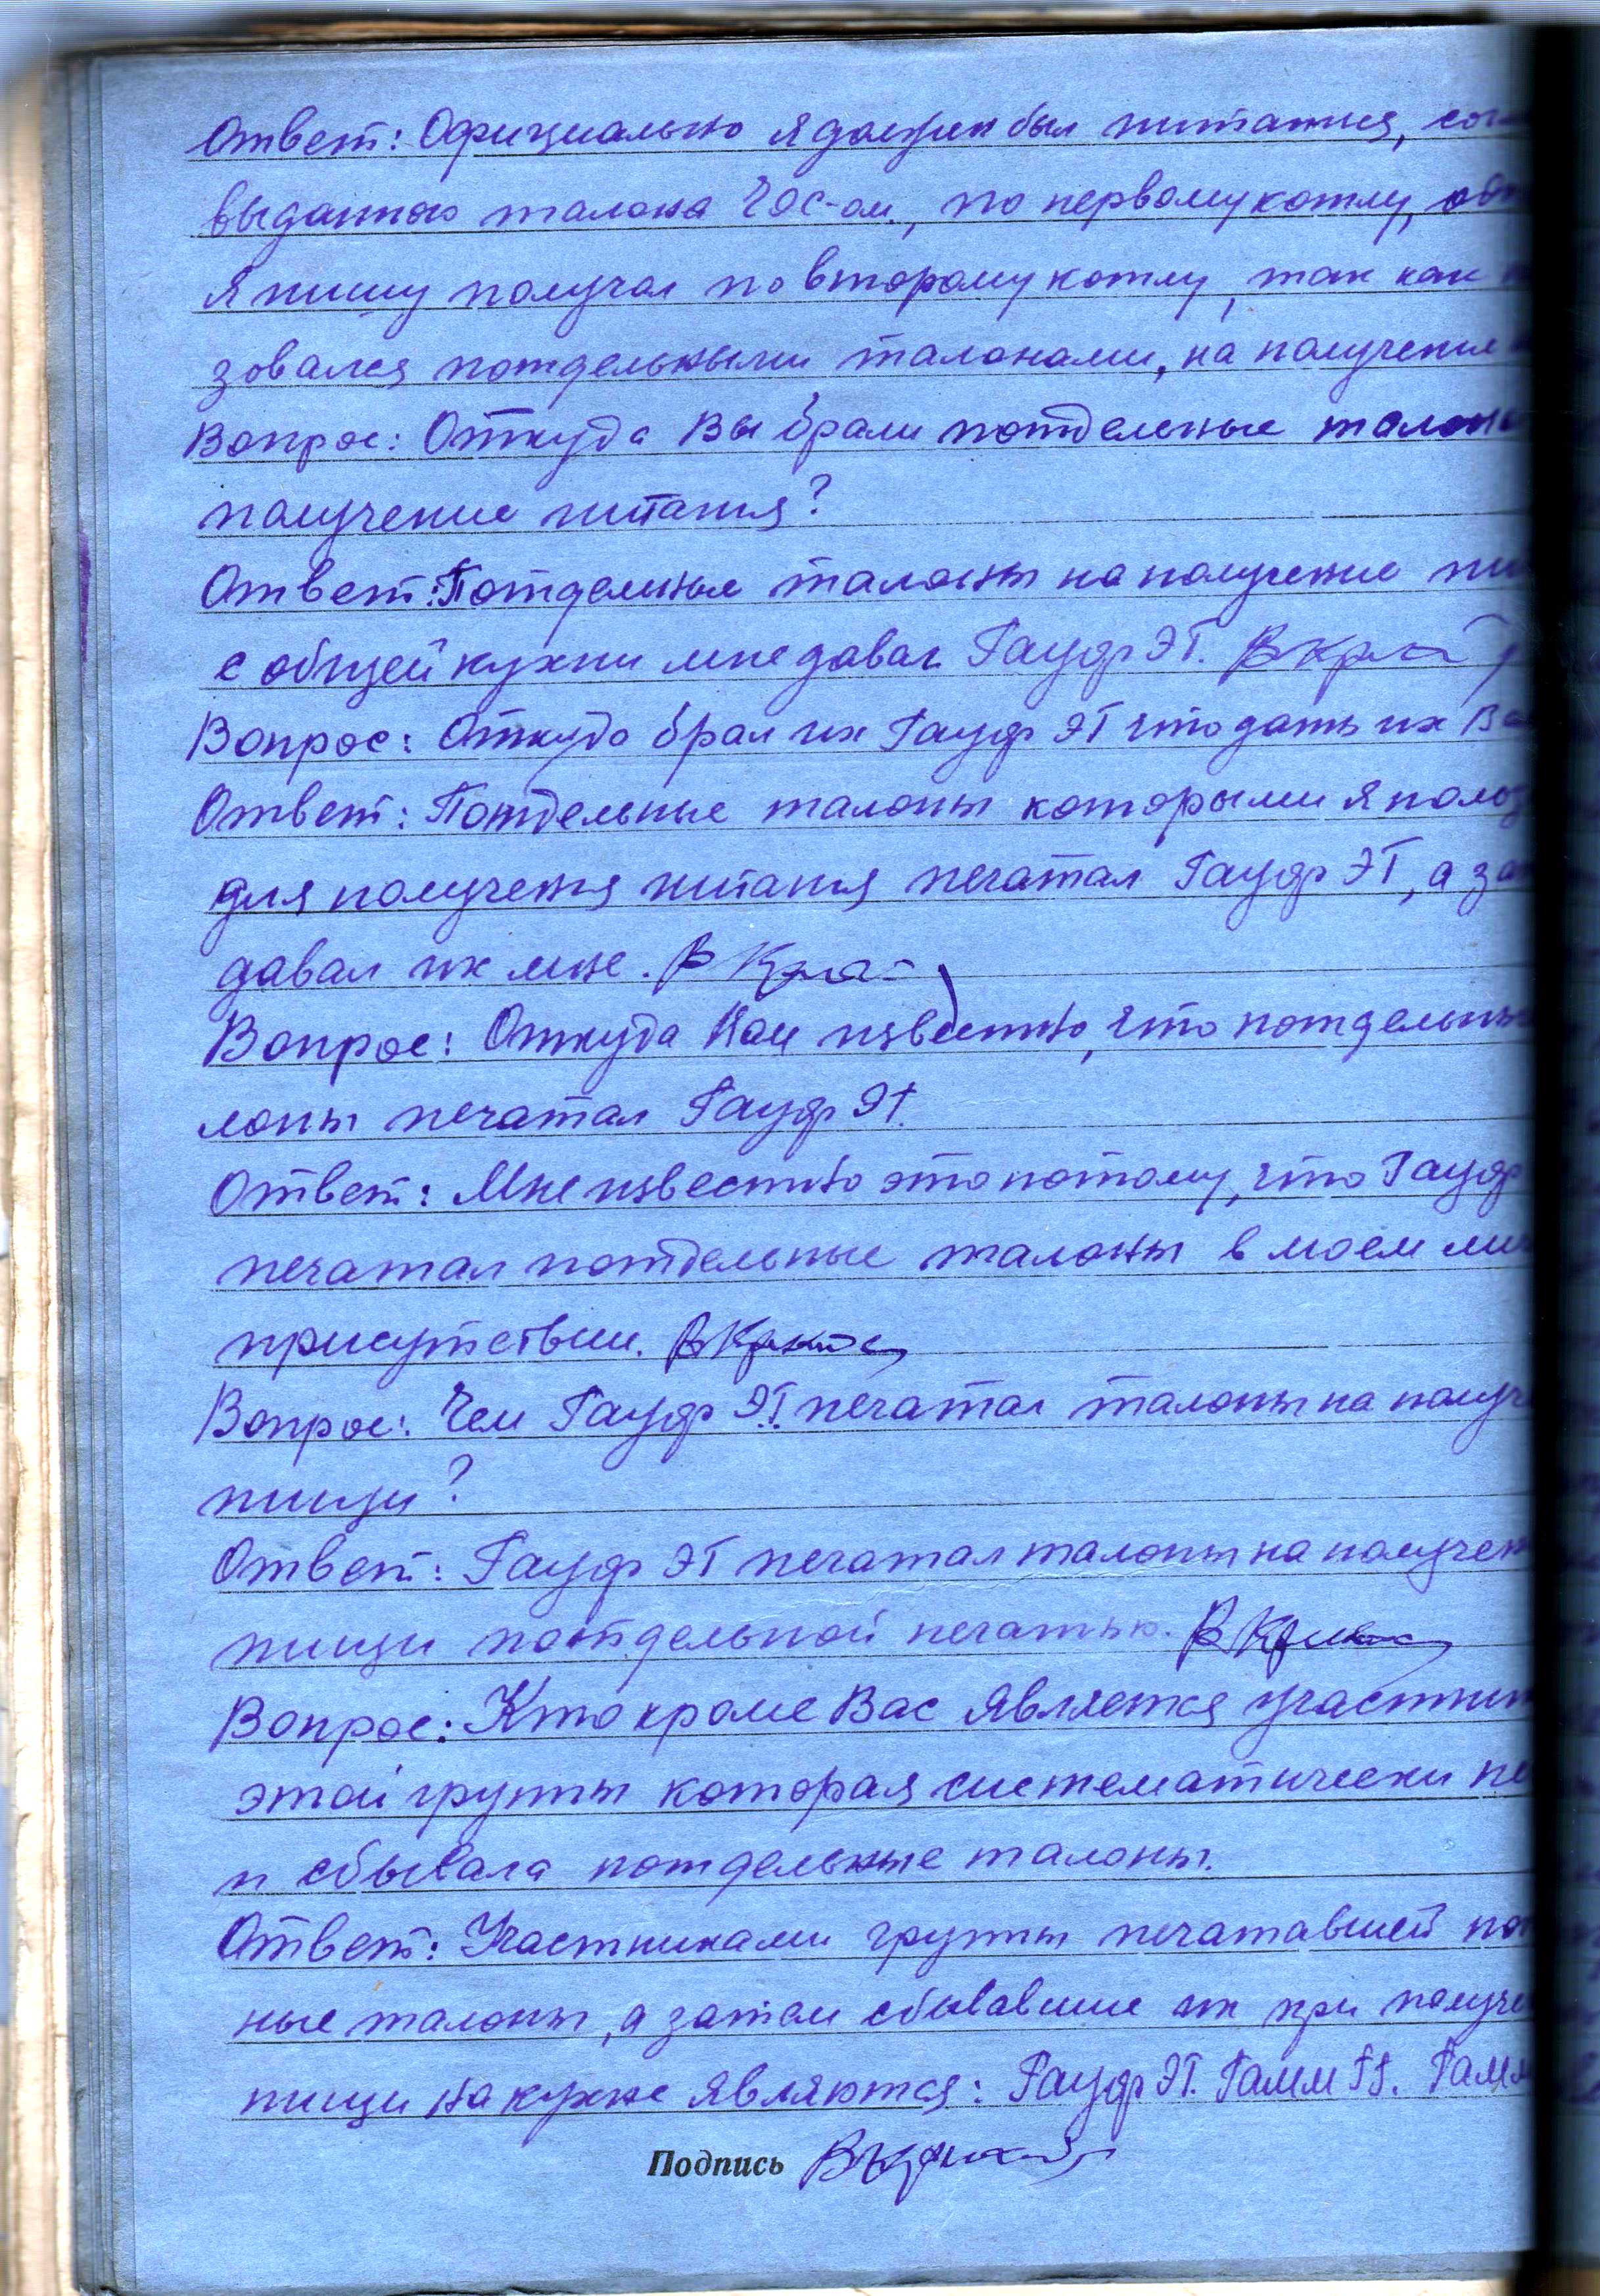 Ответ: Официально я должен был питатся,
выданного талона ЧОС-ом, по первому котлу,
я пищу получал по второму котлу, так как
зовался потдельными талонами, на получение
Вопрос: Откуда Вы брали потделеные талоны
получение питания?
Ответ: Потдельные талоны на получение
с общей кухни мне давал Гауф ЭГ.
Вопрос: Откудо брал их Гауф ЭГ что дать их
Ответ: Потдельные талоны которыми я польз
для получения питания печатал Гауф ЭГ, а
давал их мне.
Вопрос: Откуда Вам известно, что потдельны
лоны печатал Гауф ЭГ.
Ответ: Мне известно это потому, что Гауф
печатал потдельные талоны в моем
присутствии.
Вопрос: Чем Гауф ЭГ. печатал талоны на получе
пищи?
Ответ: Гауф ЭГ печатал талоны на получен
пищи потдельной печатью.
Вопрос: Кто кроме Вас является участник
этой группы которая систематически
и сбывала потдельные талоны.
Ответ: Участниками группы печатавшей пот
ные талоны, а затем сбывавшие их при получе
пищи на кухне являются: Гауф ЭГ. Гамм Гамм
Подпись